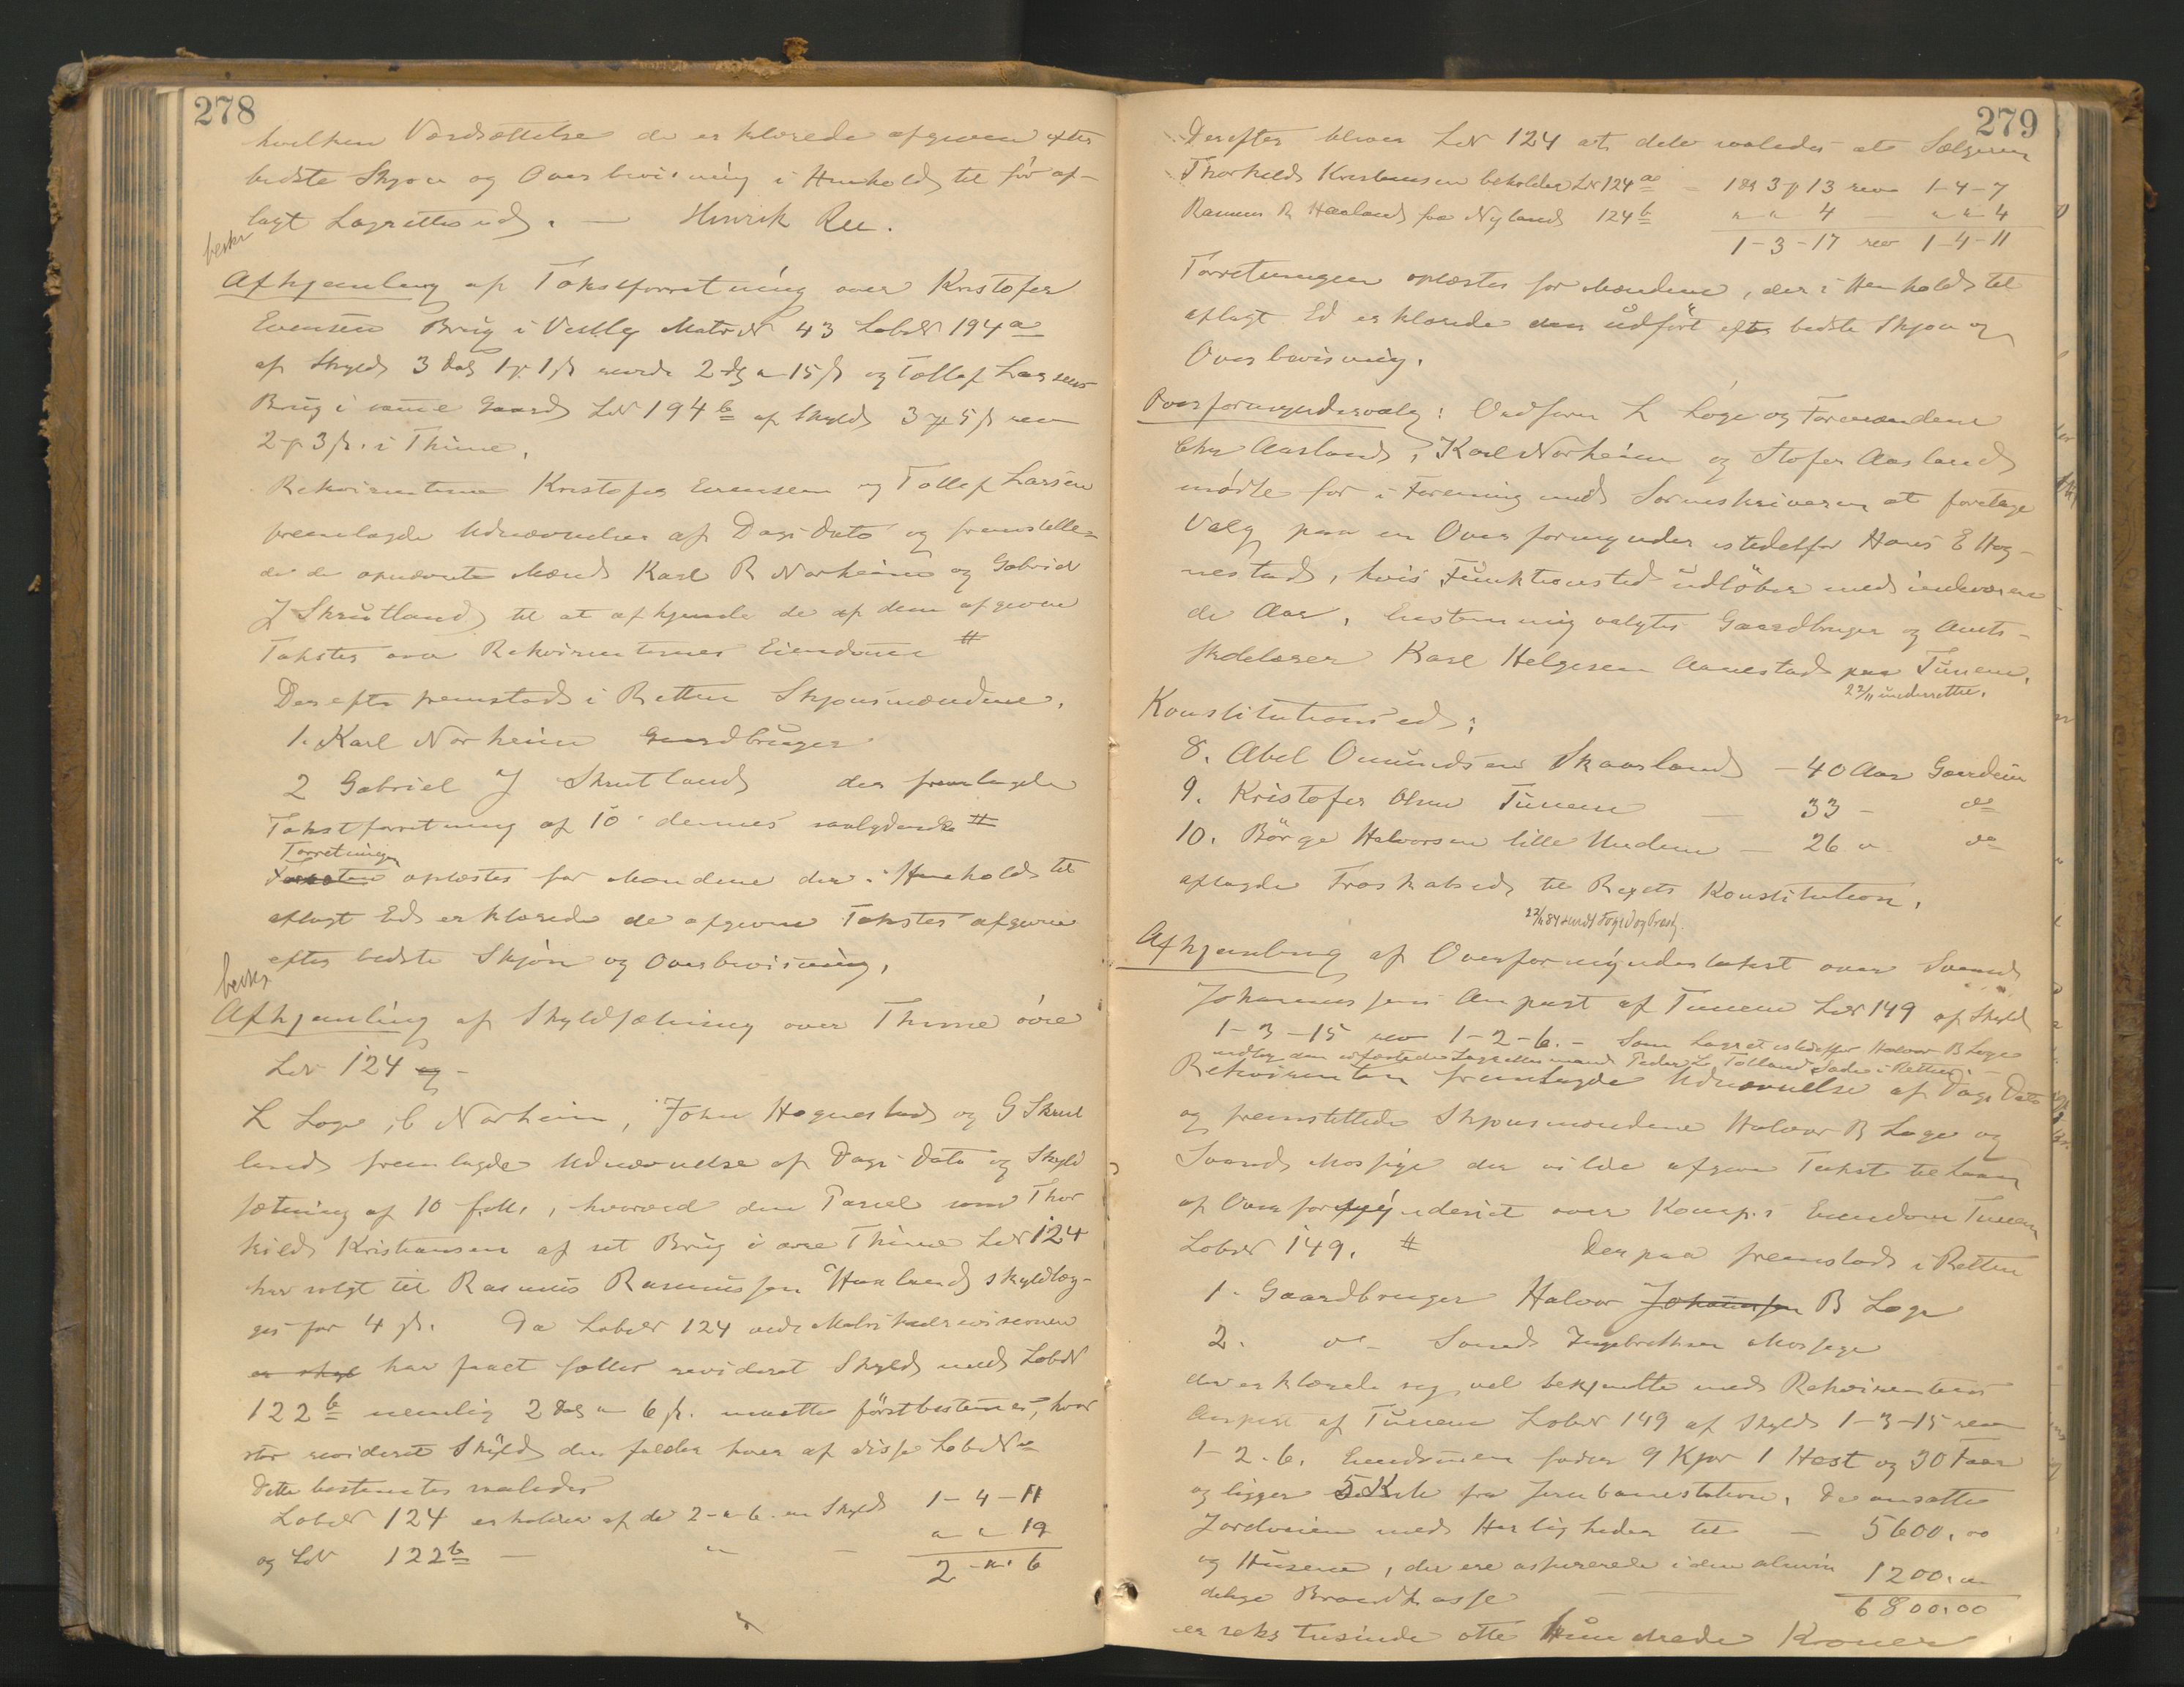 278
hvilken Værdsættelse de erklærede afgiven efter
bedste Skjøn og Overbevisning i Henhold til før af-
lagt Lagrettesed. — Henrik Ree.
beskr
Afhjemling af Taksforretning over Kristofer
Evensen Brug i Vestly Matr N 43 LobeN 194 a
af Skyld 3 Dal 1 p 1 s revd 2 d " 15 s og Tollef Larsens
Brug i samme Gaard LN 194 b af Skyld 3 p 5 s rev
2 p 3 s. i Thime.
Rekvirenterne Kristofer Evensen og Tollef Larsen
fremlagde Udnævnelser af Dags Dato og fremstille-
de de opnævnte Mænd Karl R Norheim og Gabriel
J Skrutland til at afhjemle de af dem afgivne
Takster over Rekvirenternes Eiendomme #
Derefter fremstod i Retten Skjønsmændene.
1. Karl Norheim Gaardbruger
2 Gabriel J Skrutland der fremlagde
Takstforretning af 10 dennes saalydende #
Forretningen
oplæstes for Mændene der i Henhold til
aflagt Ed erklærede de afgivne Takster afgivne
efter bedste Skjøn og Overbevisning.
beskr
Afhjemling af Skyldsætning over Thime øvre
LN 124 og -
L Loge, C Norheim, John Hognestad og G Skrut
land fremlagde Udnævnelse af Dags Dato og Skyld
sætning af 10 , hvorved den Parcel som Thor
kild Kristiansen af sit Brug i øvre Thime LN 124
har solgt til Rasmus Rasmussen Haaland skyldlæg-
ges for 4 s. Da LobeN 124 ved Matrikulrevisionen
er skyl har faaet fælles revideret Skyld med LobeN
122 b nemlig 2 Dal " 6 s. maatte først bestemmes, hvor
stor revideret Skyld der falder hver af disse LobeNe
Dette bestemtes saaledes
LobeN 124 erholder af de 2-"-6. en Skyld 1-4-11
og LN 122 b — " — " " 19
2-"-6
279
Derefter bliver LN 124 at dele saaledes at Sælgeren
Thorkild Kristiansen beholder LN 124 a — 1 d 3 p 13 rev 1-4-7
Rasmus R Haaland faar Nyland 124 b " " 4 " " 4
1-3-17 rev 1-4-11
Forretningen oplæstes for Mændene, der i Henhold til
aflagt Ed erklærede den udført efter bedste Skjøn og
Overbevisning.
Overformyndervalg: Ordfører L Loge og Formændene
Chr Aasland, Karl Norheim og Stofer Aasland
mødte for i Forening med Sorenskriveren at foretage
Valg paa en Overformynder istedetfor Hans E Hog-
nestad, hvis Funktionstid udløber med indværen
de Aar. Enstemmig valgtes Gaardbruger og Amts-
skolelærer Karl Helgesen Aanestad paa Tunem.
22/11 underrettet.
Konstitutionsed:
8. Abel Omundsen Skaarland — 40 Aar Gaardein
9. Kristofer Olsen Tunem — 33 — do
10. Børge Halvorsen lille Undem — 26 " do
aflagde Troskabsed til Rigets Konstitution.
22/11 84 sendt Foged og Præst.
Afhjemling af Overformyndertakst over Svend
Johannessens Anpart af Tunem LN 149 af Skyld
1-3-15 rev 1-2-6. — Som Lagret istedetfor Halvor B Loge
Lagrettesmand Peder L Tolland Sæde i Retten.
Rekvirenten fremlagde Udnævnelse af Dags Dato
og fremstillede Skjønsmændene Halvor B Loge og
Svend Mossige der vilde afgive Takst til Laan
af Overformynderiet over Komp.s Eiendom Tunem
LobeN 149. # Derpaa fremstod i Retten
1. Gaardbruger Halvor Johannesen B Loge
2. do - Svend Ingebretsen Mossige
der erklærede sig vel bekjendte med Rekvirentens
Anpart af Tunem LobeN 149 af Skyld 1-3-15 rev
1-2-6. Eiendommen føder 9 Kjør 1 Hest og 30 Faar
og ligger 5 K fra Jernbanestation. De ansatte
Jordveien med Herligheder til — 5600.00
og Husene, der ere assurerede i den almin 1200.00
delige Brandkasse — 6800.00
er seks tusinde otte Hundrede Kroner